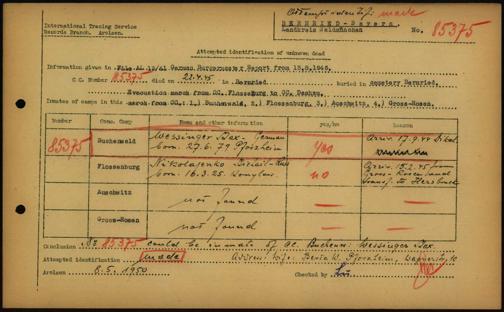 International Tracing Service
Records Branch. Arolsen.
made
BERNRIED-Bayern.
Landkreis
No. 85375
Attempted identification of unknown dead
Information given in File AL 12/41 German Burgermaster Report from 15.8.1946.
C.C. Number 85375 died on 22.4.45 in Bernried buried in cemetery Bernried.
Evacuation march from CC. Flossenburg to CC. Dachau.
Inmates of camps in this march from CC: 1.) Buchenwald, 2.) Flossenburg, 3.) Auschwitz, 4.) Gross-Rosen.
Number Conc. Camp Name and other information yes/no Reason
85375
Buchenwald Wessinger Max - German yes Arriv. 17.9.44
born. 27.6.79 Pforzheim
Flossenburg no Arriv. 15.2.45 from
born. 16.3.25. Gross-Rosen and
transf. to Hersbruck
Auschwitz not found —
Gross-Rosen not found —
Conclusion Nr 85375 could be inmate of CC. Buchenw. Wessinger Max.
Attempted identification made Address: wife, Pforzheim,
Arolsen 8.5.1950 Checked by